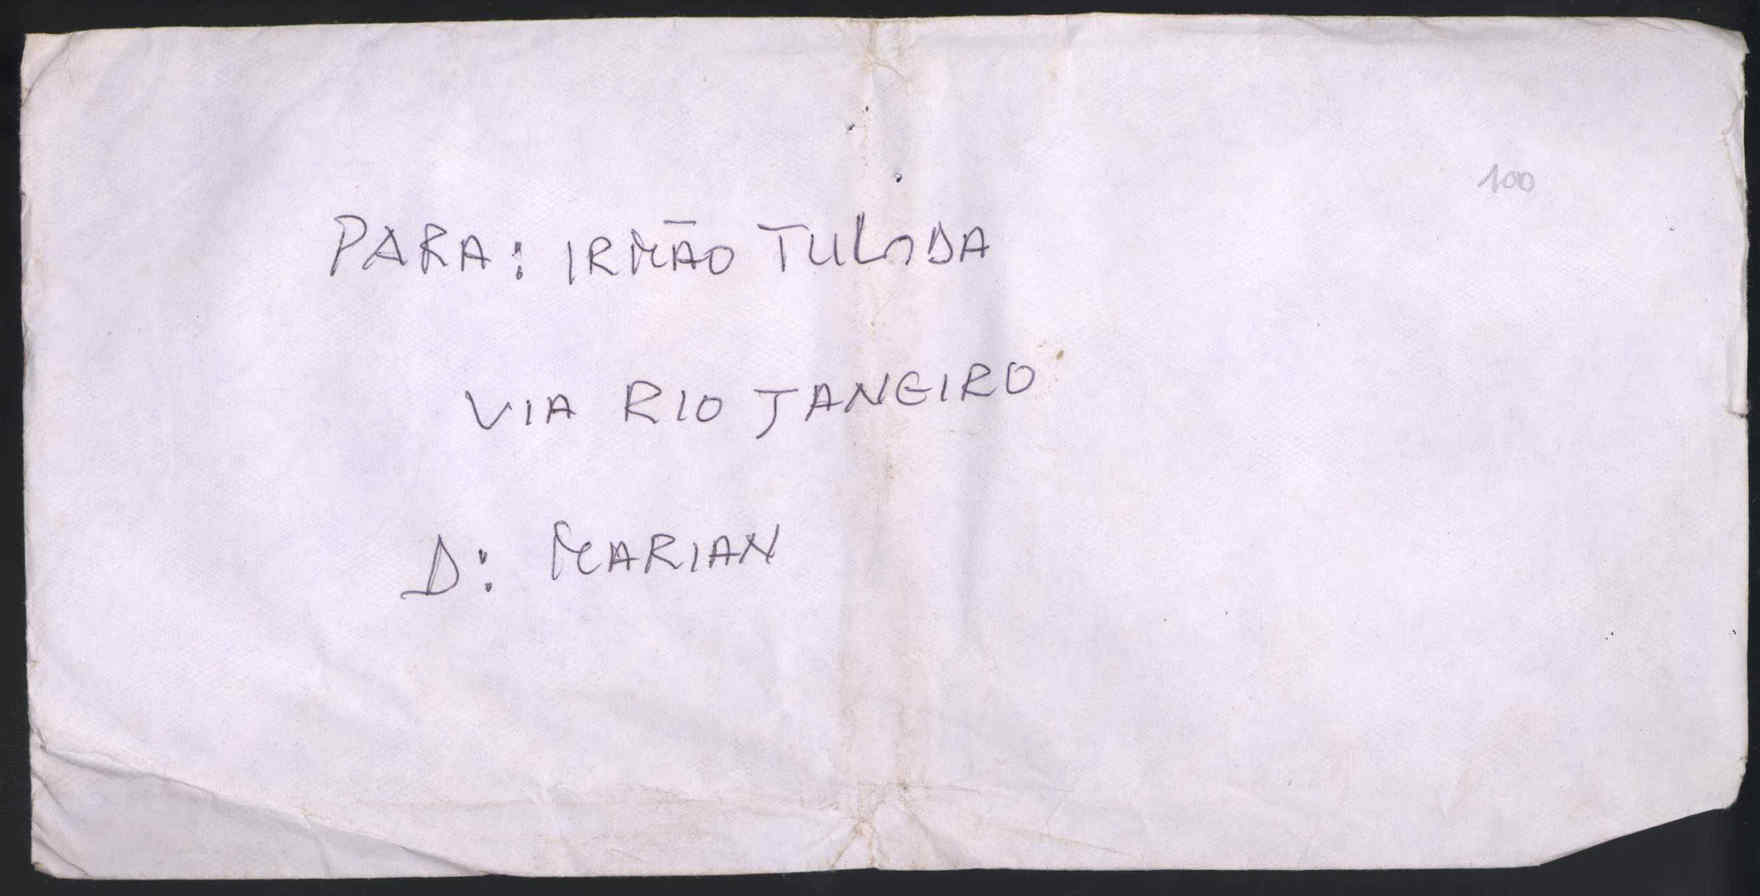 100
PARA: IRMÃO TULODA
VIA RIO JANEIRO
D: MARIAN